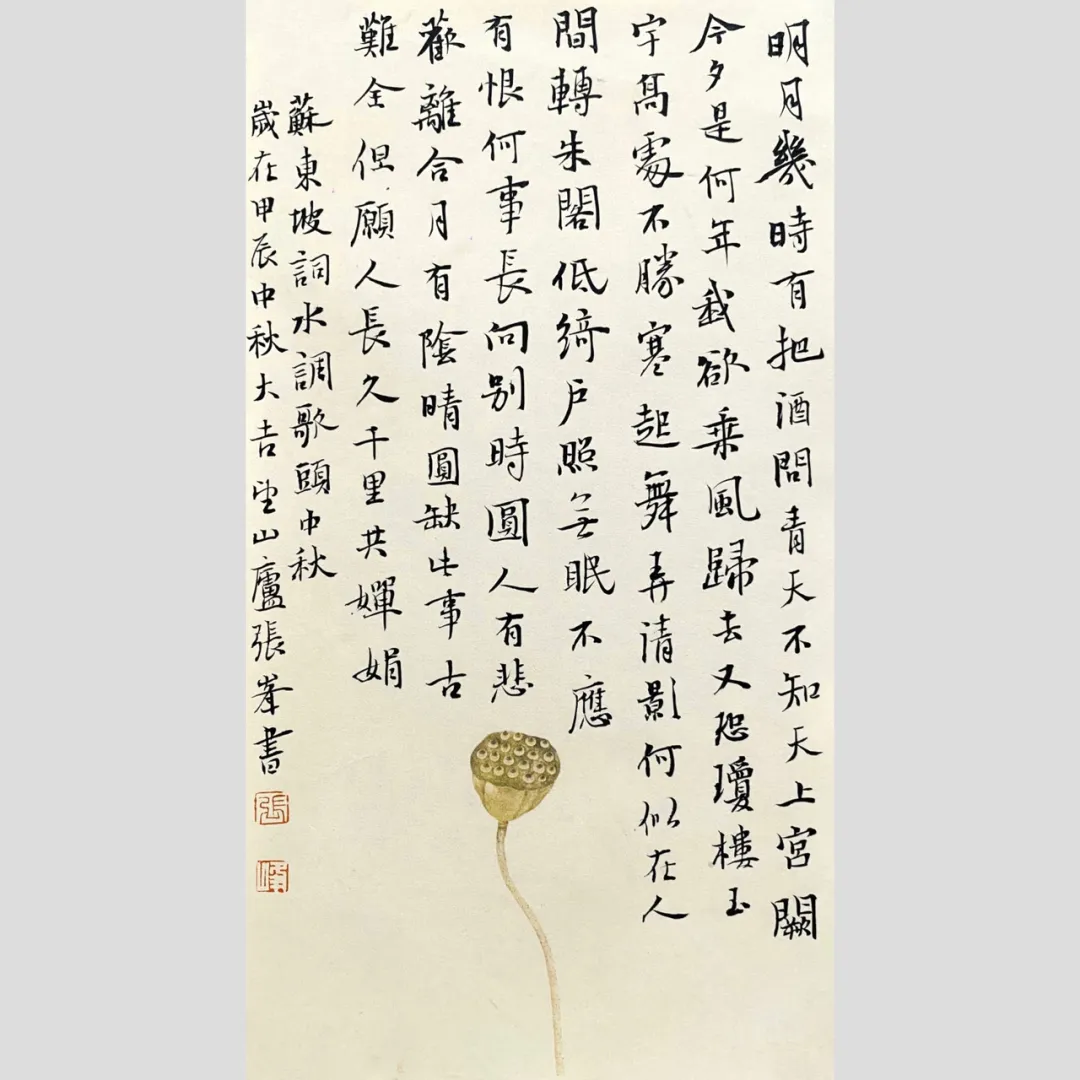 明月幾時有把酒問青天不知天上宮闕
今夕是何年我欲乘風歸去又恐瓊樓玉
宇高處不勝寒起舞弄清影何似在人
間轉朱閣低綺戶照無眠不應
有恨何事長向別時圓人有悲
歡離合月有陰晴圓缺此事古
難全但願人長久千里共嬋娟
蘇東坡詞水調歌頭中秋
歲在甲辰中秋大吉望山廬張峯書
張
峰